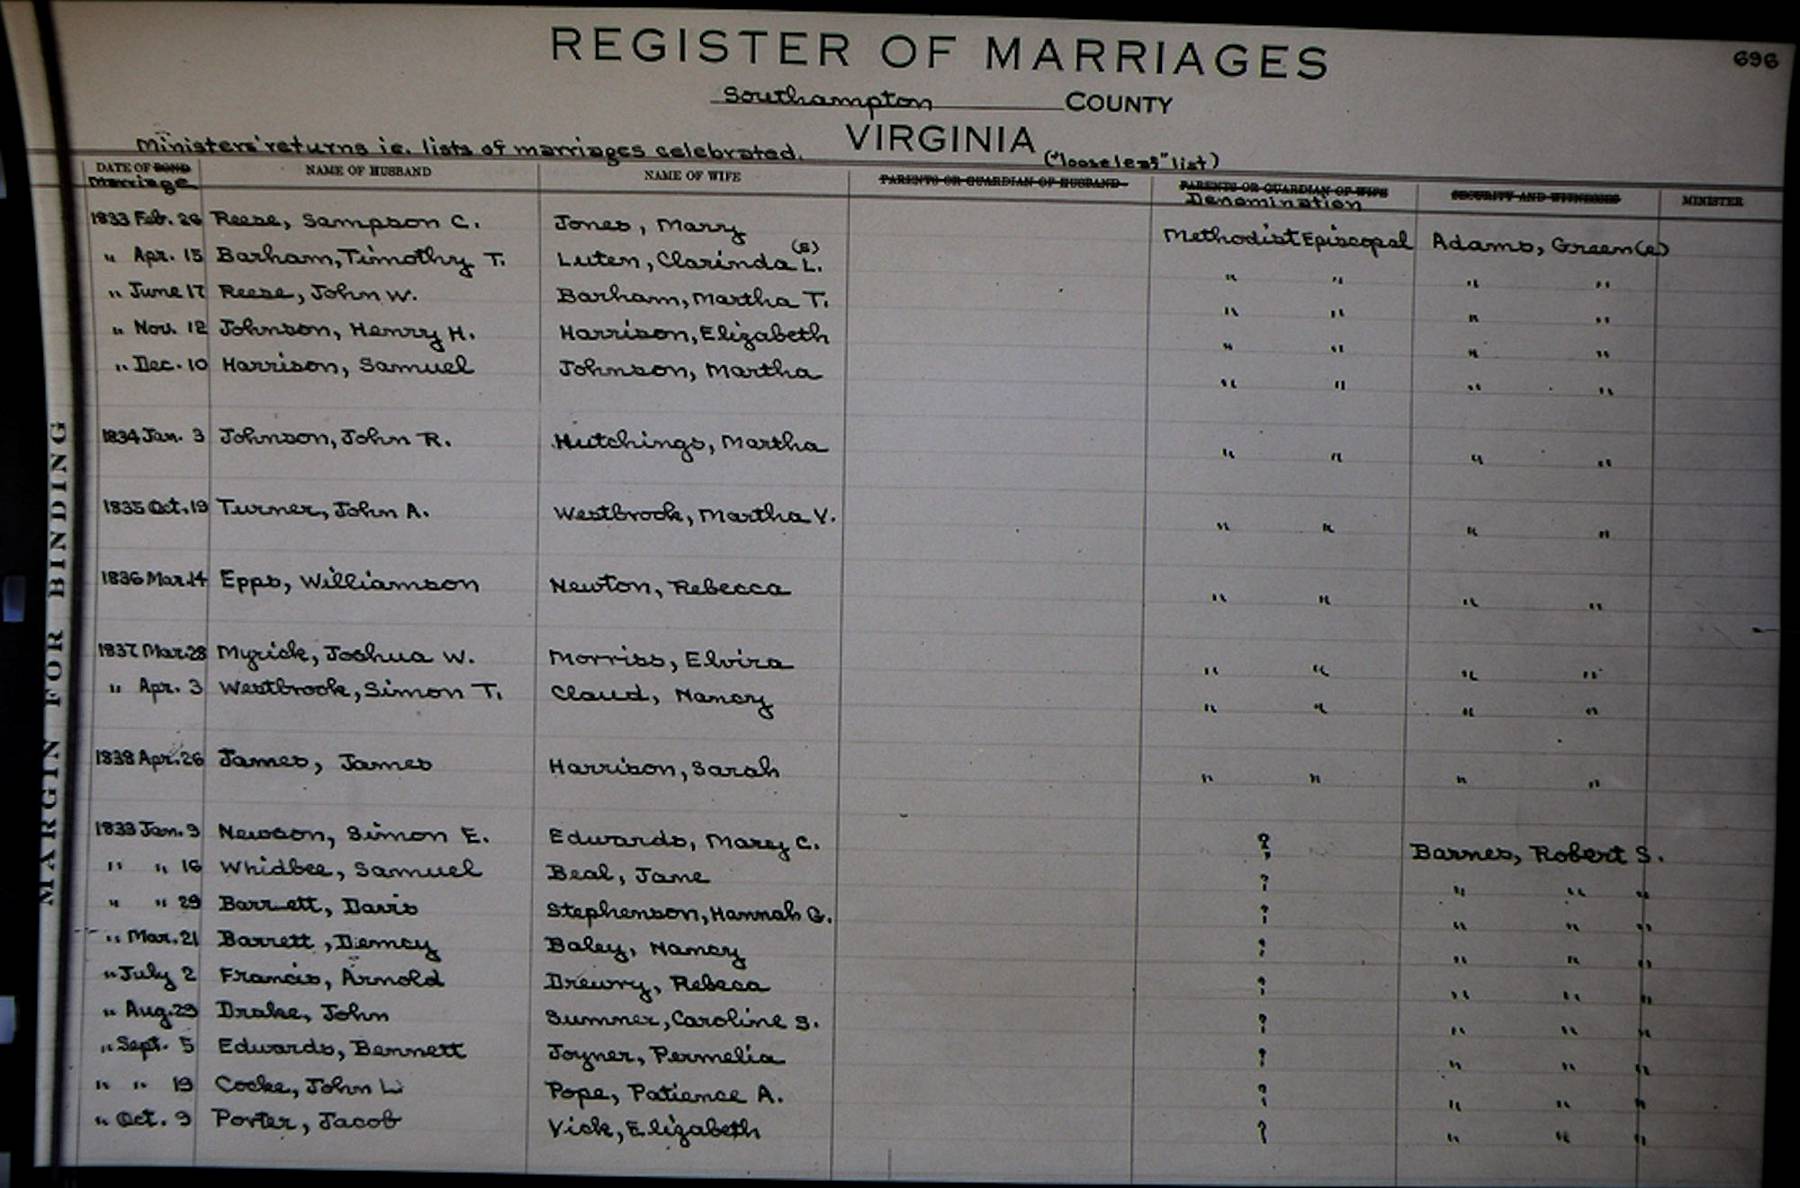 REGISTER OF MARRIAGES 696
Southampton COUNTY
Ministers' returns ie. lists of marriages celebrated. VIRGINIA ("loose leaf" list)
DATE OF BOND Marriage NAME OF HUSBAND NAME OF WIFE PARENTS OR GUARDIAN OF HUSBAND PARENTS OR GUARDIAN OF WIFE Denomination SECURITY AND WITNESSES MINISTER
1833 Feb. 26 Reese, Sampson C. Jones, Mary Methodist Episcopal Adams, Green(e)
" Apr. 15 Barham, Timothy T. Luten, Clarinda L. (S) " " " "
" June 17 Reese, John W. Barham, Martha T. " " " "
" Nov. 12 Johnson, Henry H. Harrison, Elizabeth " " " "
" Dec. 10 Harrison, Samuel Johnson, Martha " " " "
1834 Jan. 3 Johnson, John R. Hutchings, Martha " " " "
1835 Oct. 19 Turner, John A. Westbrook, Martha V. " " " "
1836 Mar. 14 Epps, Williamson Newton, Rebecca " " " "
1837 Mar. 28 Myrick, Joshua W. Morriss, Elvira " " " "
" Apr. 3 Westbrook, Simon T. Claud, Nancy " " " "
1838 Apr. 26 James, James Harrison, Sarah " " " "
1833 Jan. 9 Newson, Simon E. Edwards, Marey C. ? Barnes, Robert S.
" " 16 Whidbee, Samuel Beal, Jane ? " " "
" " 29 Barrett, Davis Stephenson, Hannah G. ? " " "
" Mar. 21 Barrett, Demcy Baley, Nancy ? " " "
" July 2 Francis, Arnold Drewry, Rebeca ? " " "
" Aug. 29 Drake, John Sumner, Caroline S. ? " " "
" Sept. 5 Edwards, Bennett Joyner, Permelia ? " " "
" " 19 Cocke, John L. Pope, Patience A. ? " " "
" Oct. 9 Porter, Jacob Vick, Elizabeth ? " " "
MARGIN FOR BINDING